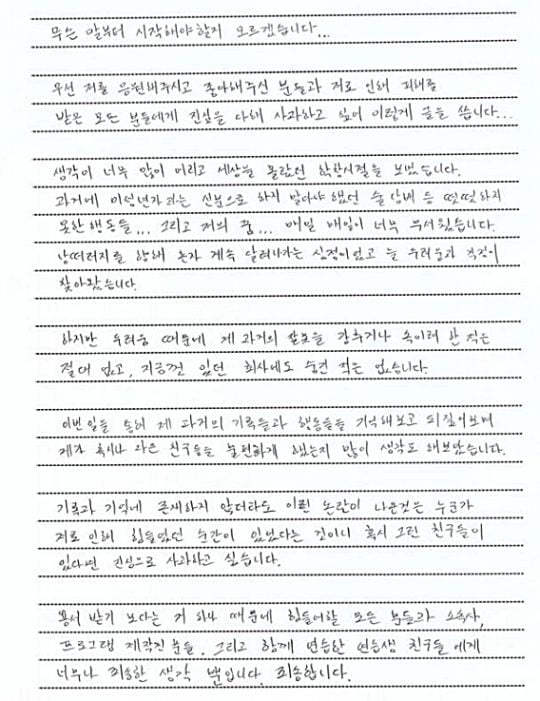 무슨 말부터 시작해야할지 모르겠습니다...
우선 저를 응원해주시고 좋아해주신 분들과 저로 인해 피해를
받은 모든 분들에게 진심을 다해 사과하고 싶어 이렇게 글을 씁니다...
생각이 너무 많이 어리고 세상을 몰랐던 학창시절을 보냈습니다.
과거에 미성년자라는 신분으로 하지 말았어야 했던 술 담배 등 떳떳하지
못한 행동들... 그리고 저의 꿈... 매일 매일이 너무 무서웠습니다.
낭떠러지를 향해 혼자 계속 달려나가는 심정이었고 늘 두려움과 걱정이
찾아왔습니다.
하지만 두려움 때문에 제 과거의 잘못을 감추거나 속이려 한 적은
절대 없고, 지금껏 있던 회사에도 숨긴 적은 없습니다.
이번 일을 통해 제 과거의 기록들과 행동들을 기억해보고 되짚어보며
제가 혹시나 다른 친구들을 불편하게 했는지 많이 생각도 해보았습니다.
기록과 기억에 존재하지 않더라도 이런 논란이 나온것은 누군가
저로 인해 힘들었던 순간이 있었다는 것이니 혹시 그런 친구들이
있다면 진심으로 사과하고 싶습니다.
용서 받기 보다는 저 하나 때문에 힘들어할 모든 분들과 소속사,
프로그램 제작진 분들, 그리고 함께 연습한 연습생 친구들에게
너무나 죄송한 생각 뿐입니다. 죄송합니다.